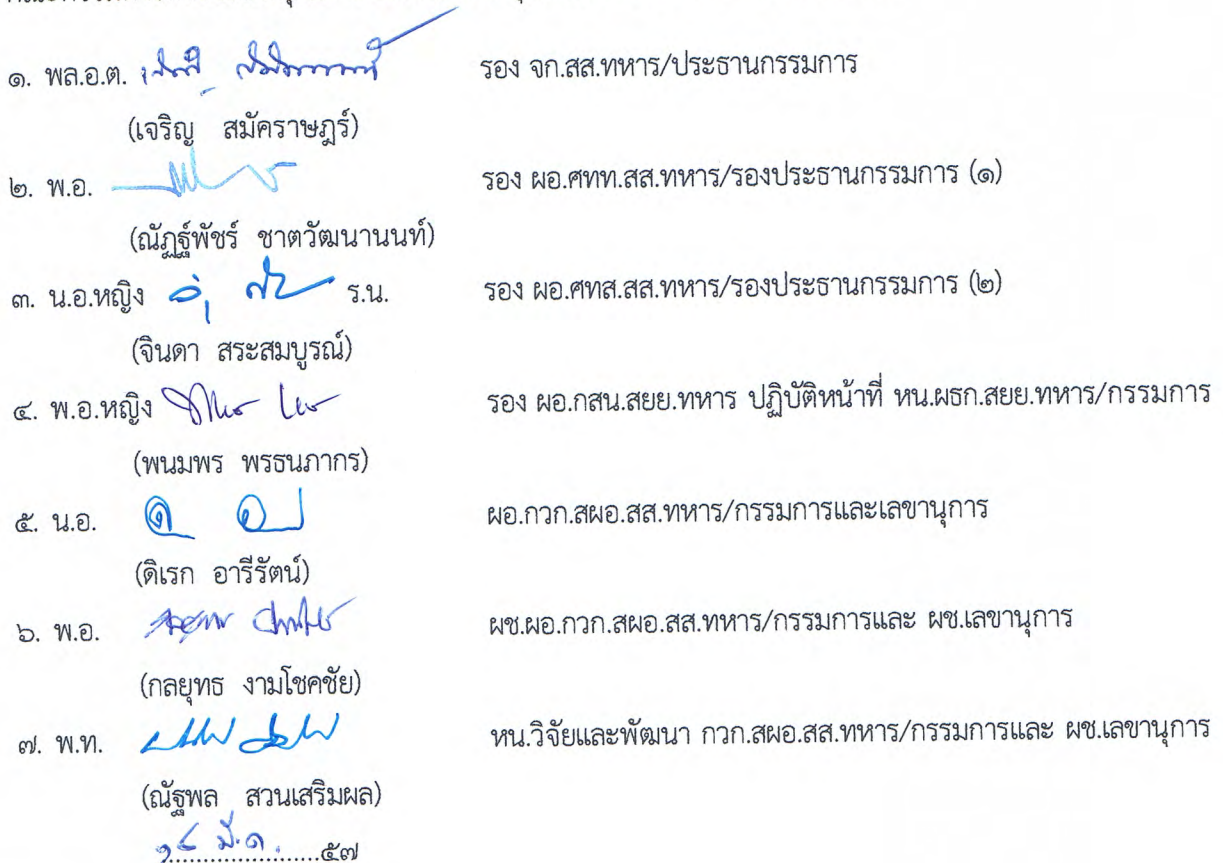 ๑. พล.อ.ต. รอง จก.สส.ทหาร/ประธานกรรมการ
(เจริญ สมัคราษฎร์)
๒. พ.อ. รอง ผอ.ศทท.สส.ทหาร/รองประธานกรรมการ (๑)
(ณัฏฐ์พัชร์ ชาตวัฒนานนท์)
๓. น.อ.หญิง ร.น. รอง ผอ.ศทส.สส.ทหาร/รองประธานกรรมการ (๒)
(จินดา สระสมบูรณ์)
๔. พ.อ.หญิง รอง ผอ.กสน.สยย.ทหาร ปฏิบัติหน้าที่ หน.ผธก.สยย.ทหาร/กรรมการ
(พนมพร พรธนภากร)
๕. น.อ. ผอ.กวก.สผอ.สส.ทหาร/กรรมการและเลขานุการ
(ดิเรก อารีรัตน์)
๖. พ.อ. ผช.ผอ.กวก.สผอ.สส.ทหาร/กรรมการและ ผช.เลขานุการ
(กลยุทธ งามโชคชัย)
๗. พ.ท. หน.วิจัยและพัฒนา กวก.สผอ.สส.ทหาร/กรรมการและ ผช.เลขานุการ
(ณัฐพล สวนเสริมผล)
มี.ค. ๕๗